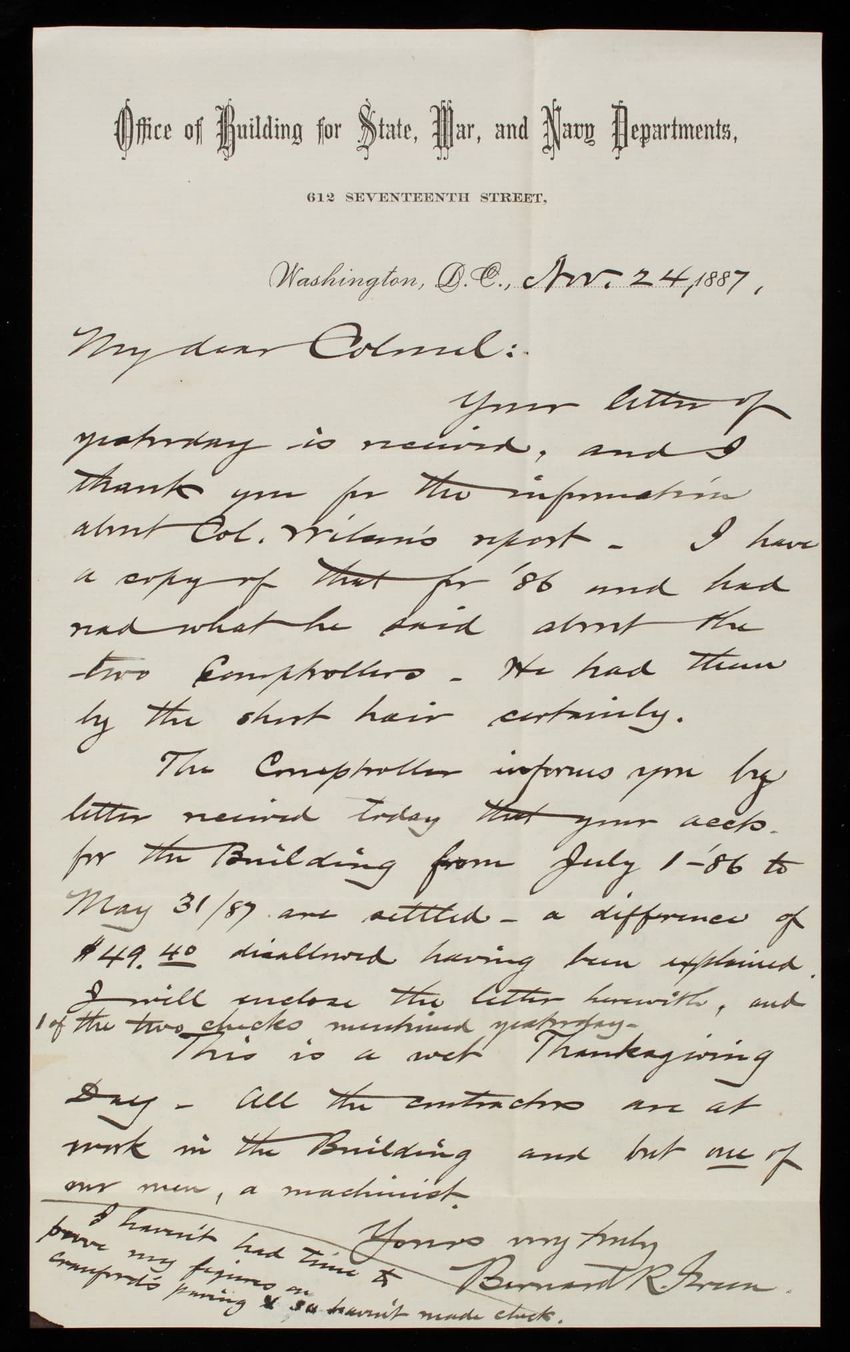 Office of Building for State, War, and Navy Departments,
612 SEVENTEENTH STREET,
Washington, D.C., Nov. 24, 1887,
My dear Colonel:
Your letter of
yesterday is received, and I
thank you for the information
about Col. Wilson's report - I have
a copy of that for '86 and had
read what he said about the
two Comptrollers - He had them
by the short hair certainly.
The Comptroller informs you by
letter received today that your accts.
for the Building from July 1-'86 to
May 31/87 are settled - a difference of
$49.40 disallowed having been explained.
I will enclose the letter herewith, and
1 of the two checks mentioned yesterday-
This is a wet Thanksgiving
Day - All the contractors are at
work in the Building and but one of
our men, a machinist.
Yours very truly
Bernard R. Green.
I haven't had time to
prove my figures on
Crawford's paving & so haven't made check.